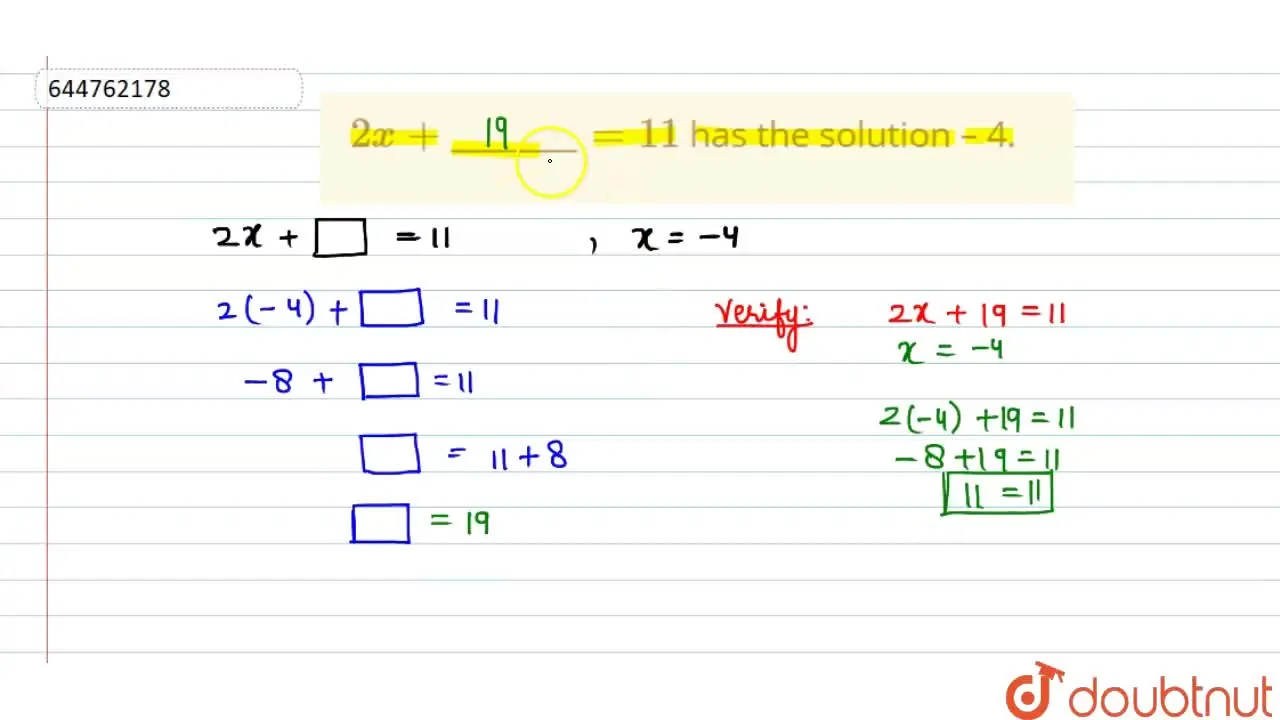 644762178
2x + 19 = 11 has the solution – 4.
2x + □ = 11 , x = -4
2(-4) + □ = 11
-8 + □ = 11
□ = 11 + 8
□ = 19
Verify: 2x + 19 = 11
x = -4
2(-4) + 19 = 11
-8 + 19 = 11
11 = 11
doubtnut